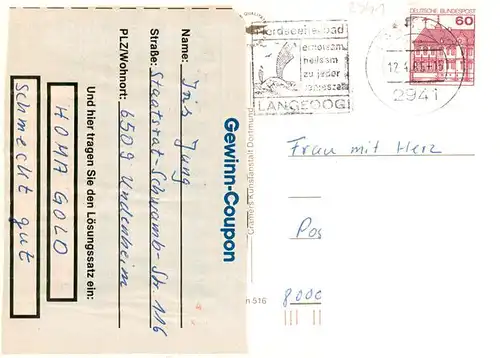 Gewinn-Coupon
Name: Iris Jung
Straße: Staatsrat-Schwamb-Str. 116
PLZ/Wohnort: 6509 Undenheim
Und hier tragen Sie den Lösungssatz ein:
HOMA GOLD
schmeckt gut
Cramers Kunstanstalt Dortmund
Nordseeheilbad
erholsam
heilsam
zu jeder
Jahreszeit
LANGEOOG
2941
DEUTSCHE BUNDESPOST
60
2941
Frau mit Herz
Pos
8000
n 516